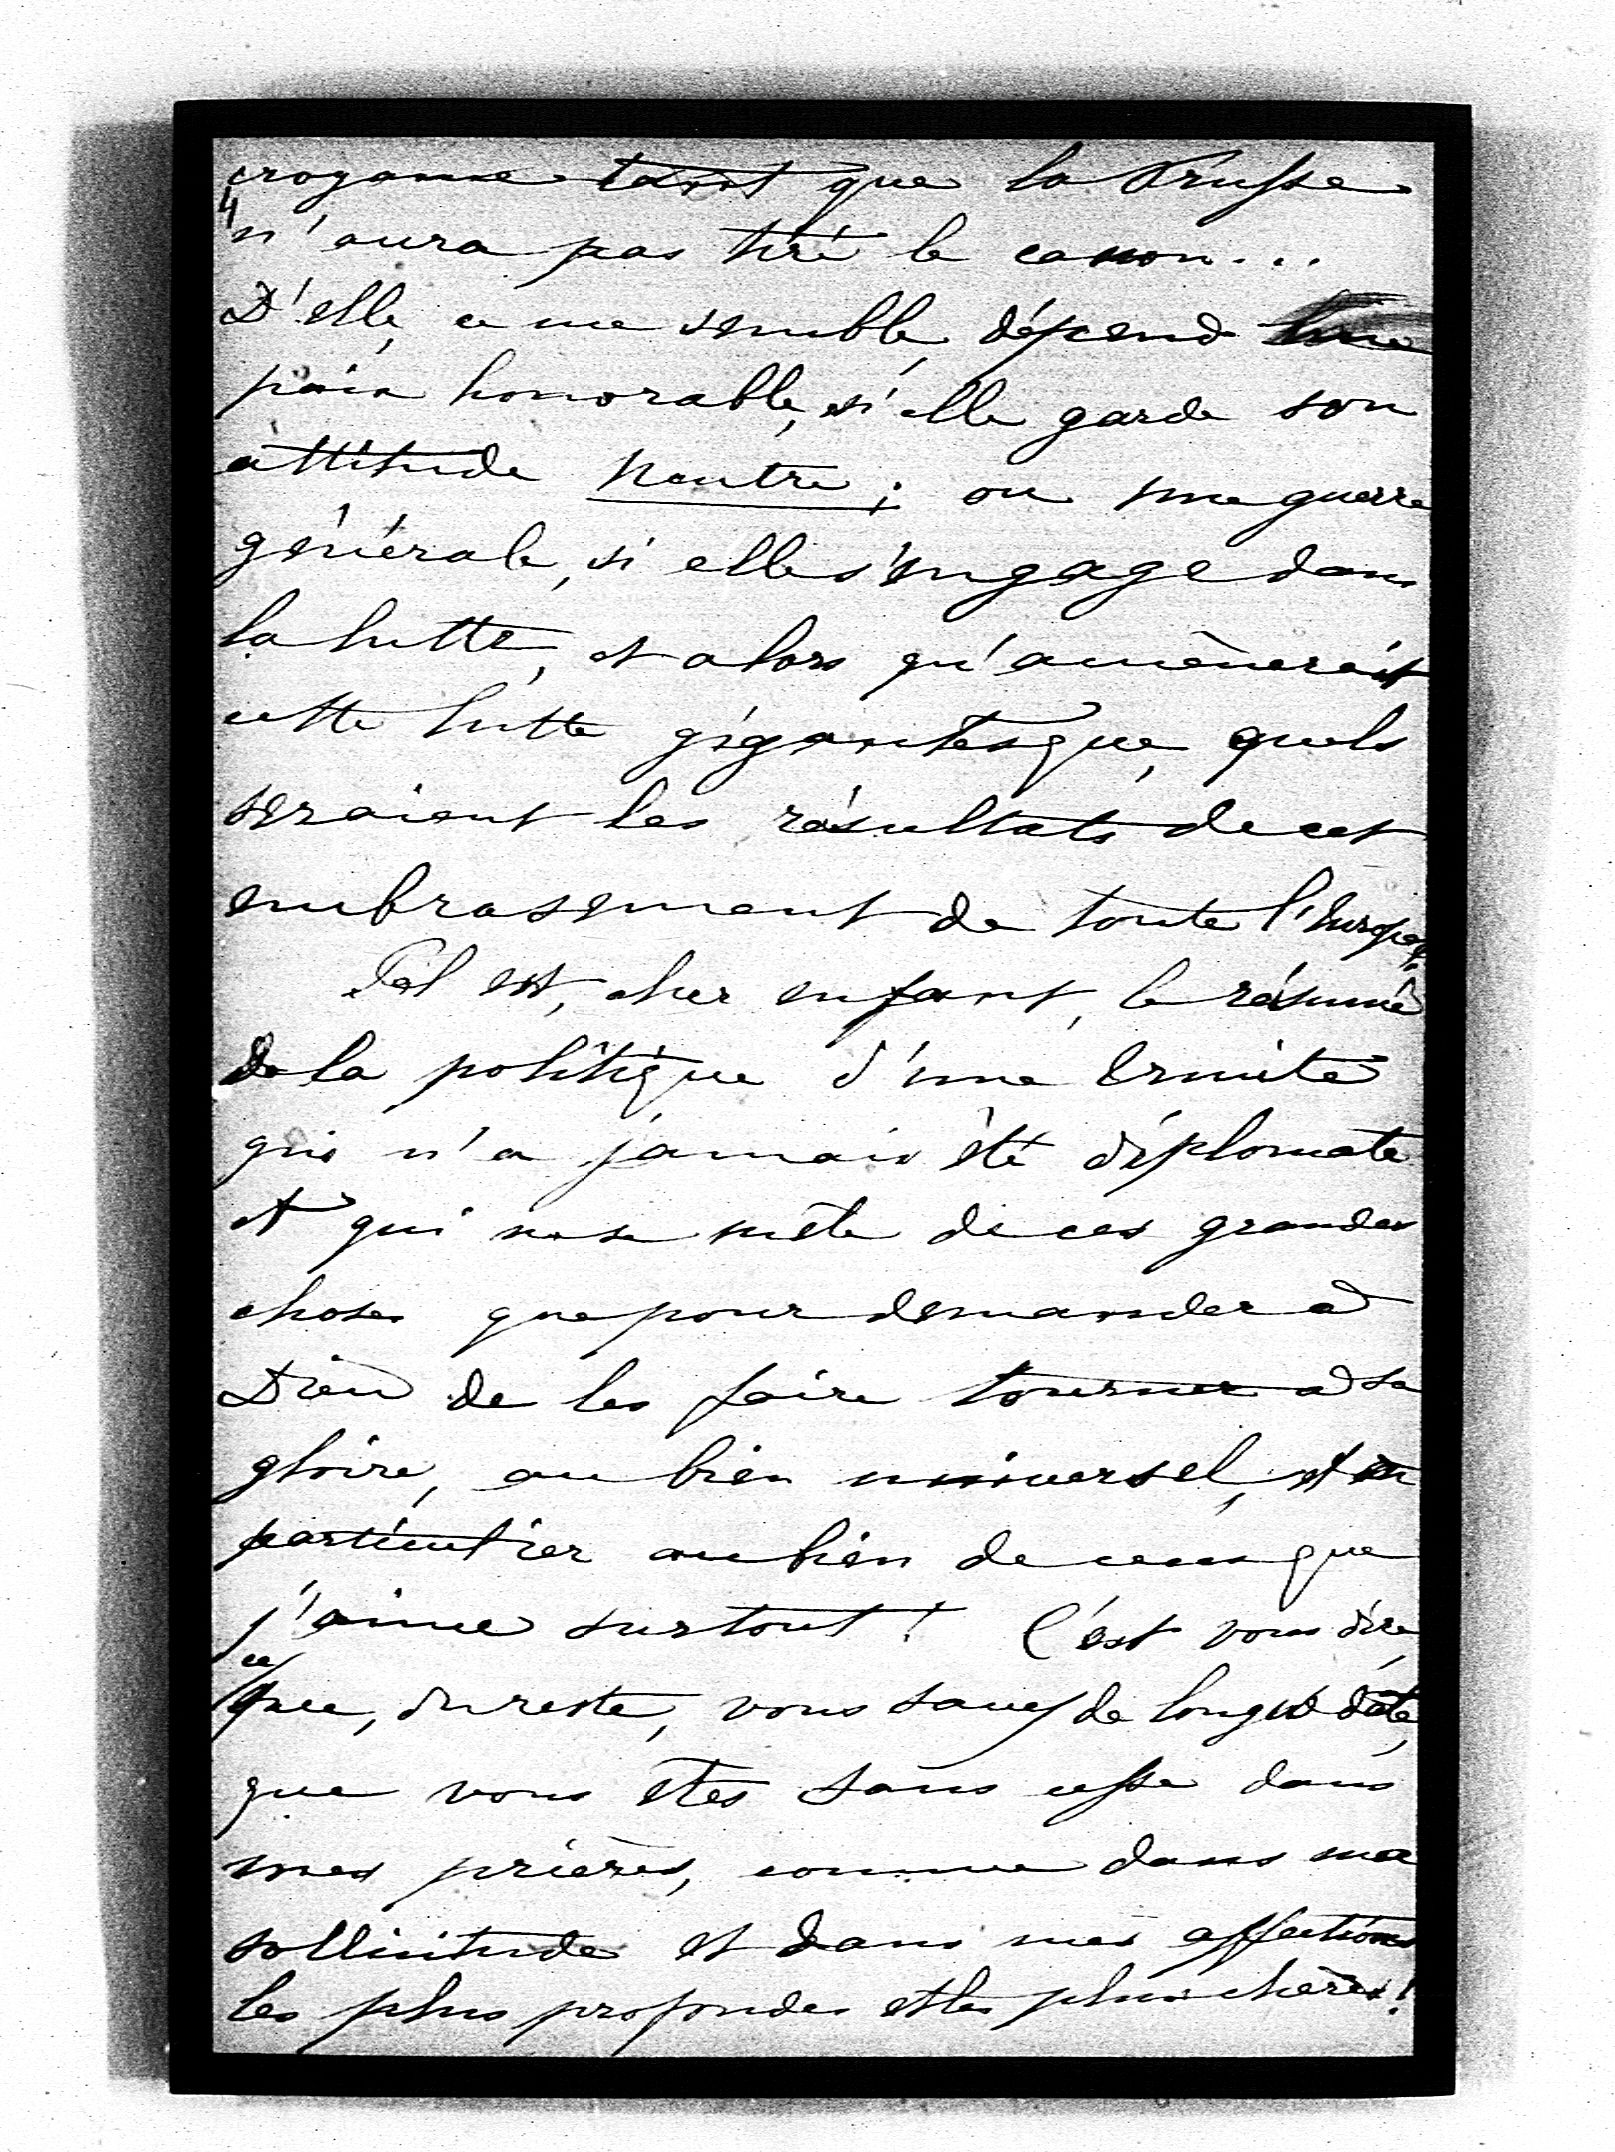 croyance tant que la Prusse
4
n'aura pas tiré le canon...
D'elle, ce me semble, dépend une
paix honorable, si elle garde son
attitude neutre ; ou une guerre
générale, si elle s'engage dans
la lutte, et alors qu'amènerait
cette lutte gigantesque, quels
seraient les résultats de cet
embrasement de toute l'Europe ?
Tel est, cher enfant, le résumé
de la politique d'une ermite
qui n'a jamais été diplomate
et qui ne se mêle de ces grandes
choses que pour demander à
Dieu de les faire tourner à sa
gloire, au bien universel, et en
particulier au bien de ceux que
j'aime surtout ! C'est vous dire,
ce
que, du reste, vous savez de longue date,
que vous êtes sans cesse dans
mes prières, comme dans ma
sollicitude et dans mes affections
les plus profondes et les plus chères !